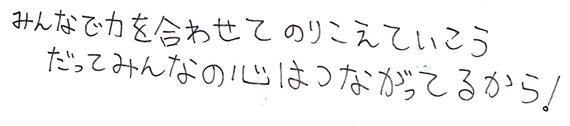 みんなで力を合わせてのりこえていこう
だってみんなの心はつながってるから!